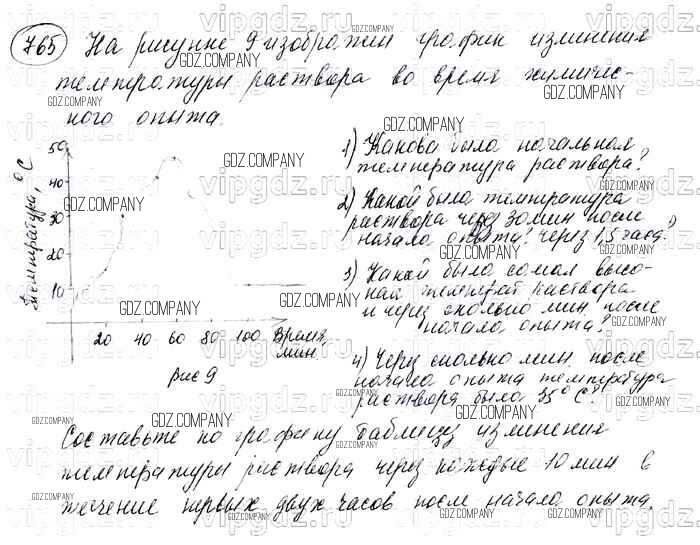 765 На рисунке 9 изображен график изменения
температуры раствора во время химичес-
кого опыта.
Температура, °C
50
40
30
20
10
20 40 60 80 100 Время, мин
рис 9
1) Какова была начальная
температура раствора?
2) Какой была температура
раствора через 30 мин после
начала опыта? через 1,5 часа?
3) Какой была самая высо-
кая температ раствора
и через сколько мин после
начала опыта?
4) Через сколько мин после
начала опыта температура
раствора была 35° C?
Составьте по графику таблицу изменения
температуры раствора через каждые 10 мин в
течение первых двух часов после начала опыта.
GDZ.COMPANY
vipgdz.ru